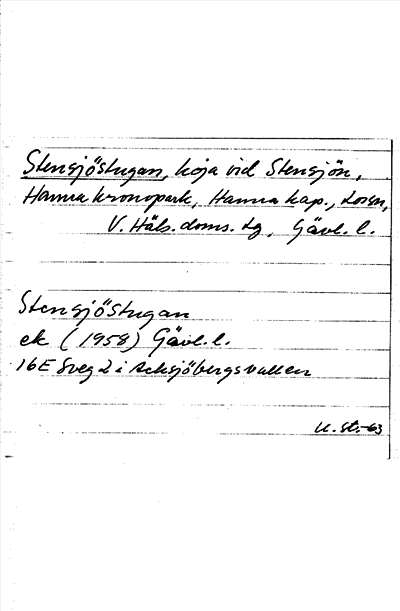 Stensjöstugan, koja vid Stensjön,
Hamra kronopark, Hamra kap., Loosn,
V. Häls. doms. tg, Gävl. l.
Stensjöstugan
ek (1958) Gävl. l.
16E Sveg 2 i Acksjöbergsvallen
U. St. -63